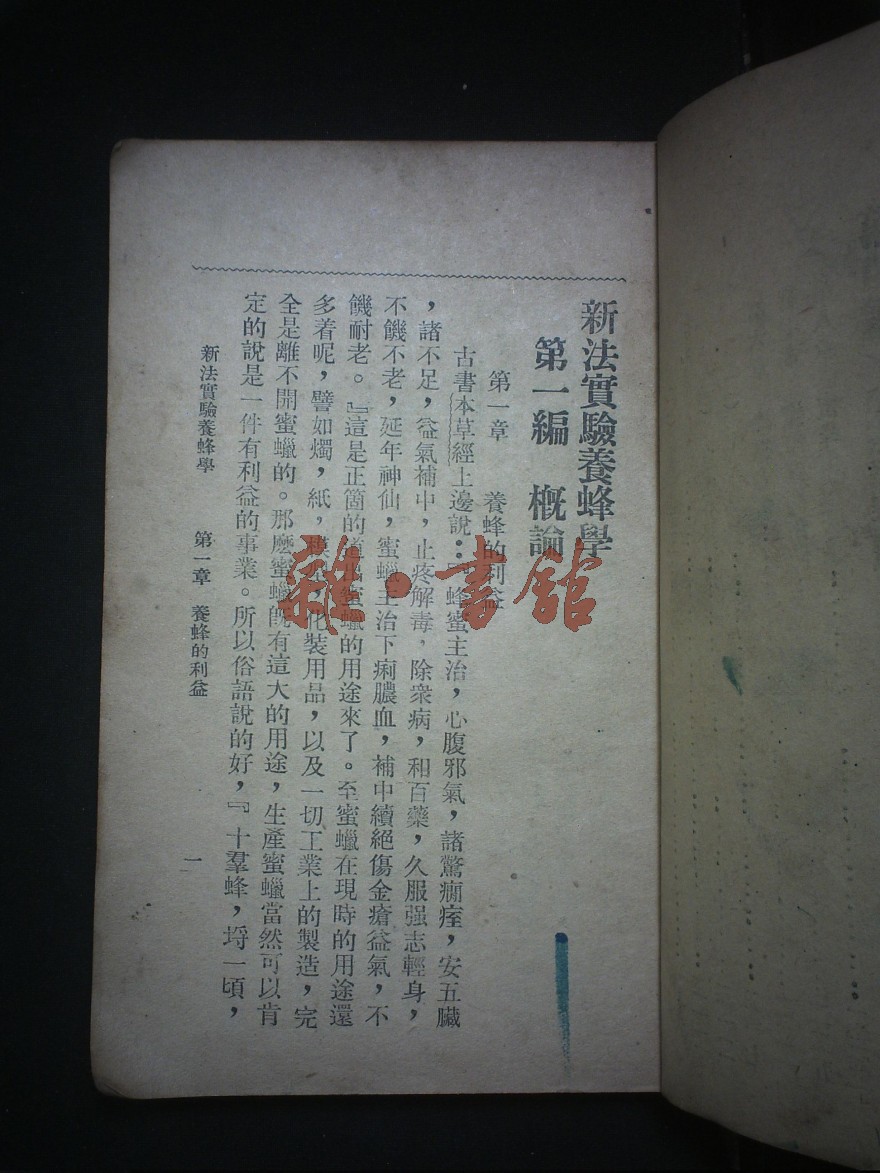 新法實驗養蜂學
第一編 概論
第一章 養蜂的利益
古書本草經上邊說：『蜂蜜主治，心腹邪氣，諸驚癇痓，安五臟
，諸不足，益氣補中，止疼解毒，除衆病，和百藥，久服强志輕身，
不饑不老，延年神仙，蜜蠟主治下痢膿血，補中續絕傷金瘡益氣，不
饑耐老。』這是正箇的道出蜜蠟的用途來了。至蜜蠟在現時的用途還
多着呢，譬如燭，紙，模型，化裝用品，以及一切工業上的製造，完
全是離不開蜜蠟的。那麽蜜蠟既有這大的用途，生產蜜蠟當然可以肯
定的說是一件有利益的事業。所以俗語說的好，『十羣蜂，埒一頃，
新法實驗養蜂學 第一章 養蜂的利益 一
雜·書館